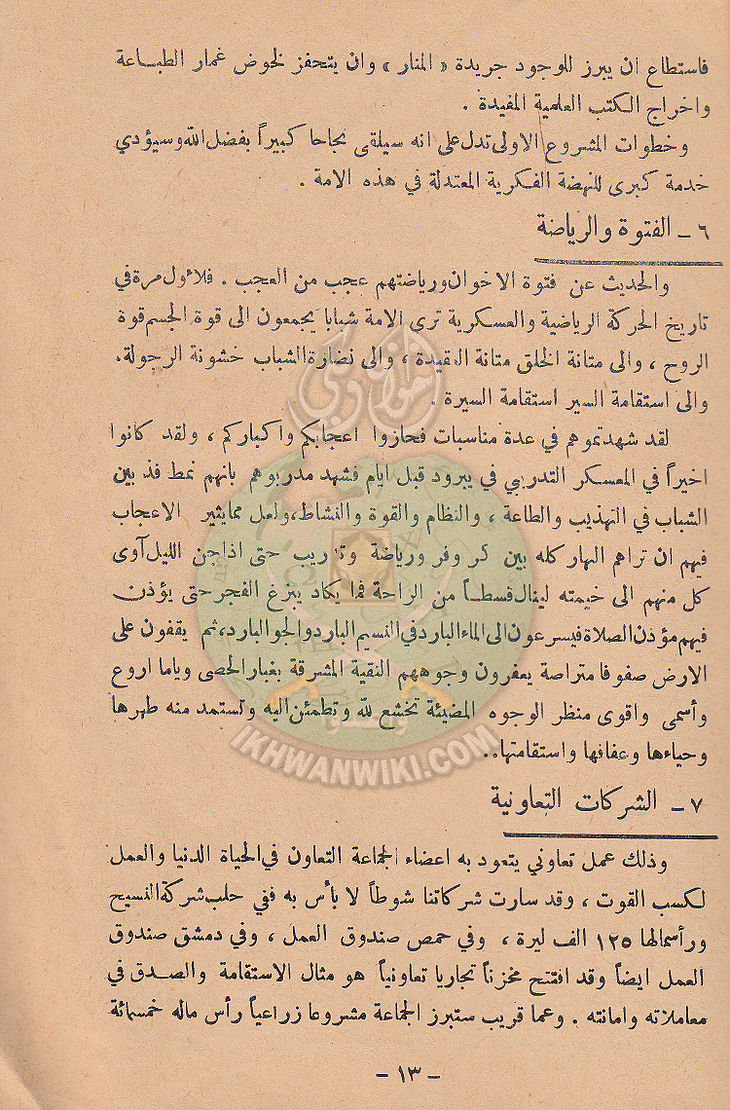 فاستطاع ان يبرز للوجود جريدة « المنار » وان يتحفز لخوض غمار الطبـاعة
واخراج الكتب العلمية المفيدة .
وخطوات المشروع الاولى تدل على انه سيلقى نجاحا كبيراً بفضل الله وسيؤدي
خدمة كبرى للنهضة الفكرية المعتدلة في هذه الامة .
٦ - الفتوة والرياضة
والحديث عن فتوة الاخوان ورياضتهم عجب من العجب . فلاول مرة في
تاريخ الحركة الرياضية والعسكرية ترى الامة شبابا يجمعون الى قوة الجسم قوة
الروح ، والى متانة الخلق متانة العقيدة ، والى نضارة الشباب خشونة الرجولة.
والى استقامة السير استقامة السيرة .
لقد شهدتموهم في عدة مناسبات فحازوا اعجابكم واكباركم ، ولقد كانوا
اخيراً في المعسكر التدربي في يبرود قبل ايام فشهد مدربوهم بانهم نمط فذ بين
الشباب في التهذيب والطاعة ، والنظام والقوة والنشاط، ولعل مما يثير الاعجاب
فيهم ان تراهم النهار كله بين كر وفر ورياضة وتدريب حتى اذا جن الليل آوى
كل منهم الى خيمته لينال قسطـاً من الراحة فما يكاد يبزغ الفجر حتى يؤذن
فيهم مؤذن الصلاة فيسرعون الى الماء البارد في النسيم البارد والجو البارد، ثم يقفون على
الارض صفوفا متراصة يعفرون وجوههم النقية المشرقة بغبار الحصى وياما اروع
وأسمى واقوى منظر الوجوه المضيئة تخشع لله وتطمئن اليه وتستمد منه طهرها
وحياءها وعفافها واستقامتها..
IKHWANWIKI.COM
٧ - الشركات التعاونية
وذلك عمل تعاوني يتعود به اعضاء الجماعة التعاون في الحياة الدنيا والعمل
لكسب القوت ، وقد سارت شركاتنا شوطاً لا بأس به ففي حلب شركة النسيج
ورأسمالها ١٢٥ الف ليرة ، وفي حمص صندوق العمل ، وفي دمشق صندوق
العمل ايضاً وقد افتتح مخزناً تجاريا تعاونياً هو مثال الاستقامة والصـدق في
معاملاته وامانته . وعما قريب ستبرز الجماعة مشروعا زراعياً رأس ماله خمسمائة
- ١٣ -